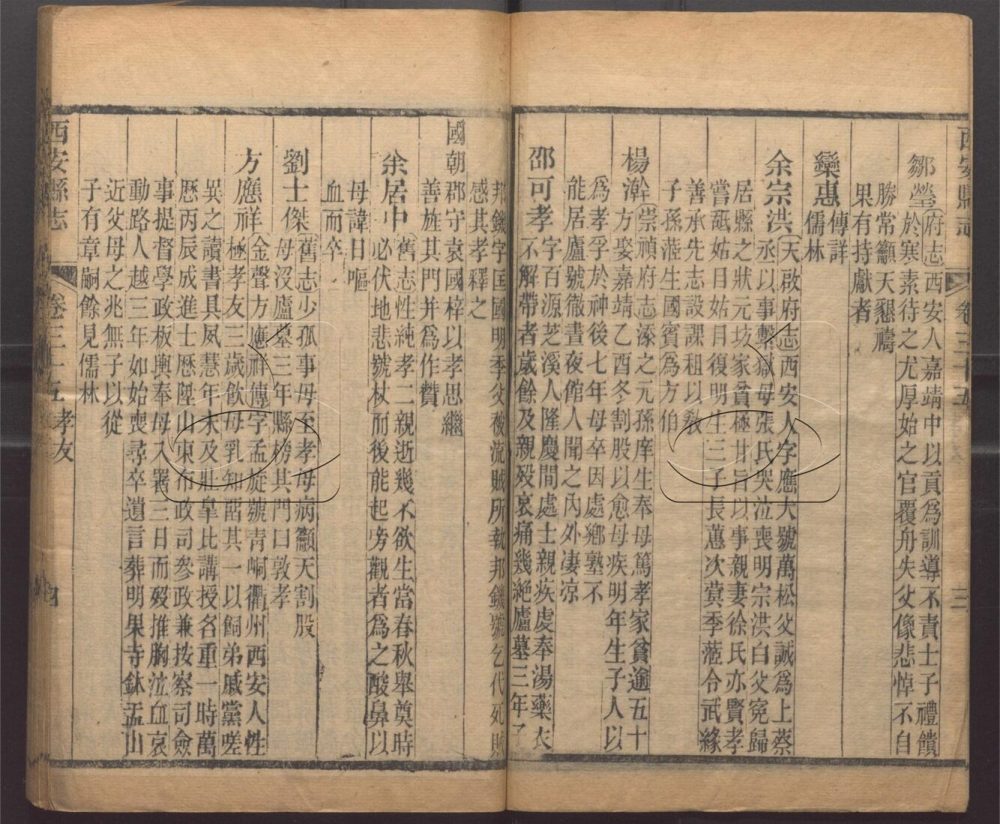 西安縣志 卷三十五 三
鄒瑩府志西安人嘉靖中以貢為訓導不責士子禮饋
於寒素待之尤厚始之官覆舟失父像悲悼不自
勝常籲天懇禱
果有持獻者
欒惠傳詳
儒林
余宗洪天啟府志西安人字應大號萬松父誠為上蔡
丞以事繫獄母張氏哭泣喪明宗洪白父寃歸
居縣之狀元坊家貧極甘旨以事親妻徐氏亦賢孝
嘗舐姑目姑目復明生三子長蕙次蓂季蒞令武緣
善承先志設課租以教
子孫蒞生國賓為方伯
楊瀚崇禎府志溱之元孫庠生奉母篤孝家貧逾五十
方娶嘉靖乙酉冬割股以愈母疾明年生子人以
為孝孚於神後七年母卒因處鄉塾不
能居廬號徹晝夜館人聞之內外淒涼
邵可孝字百源芝溪人隆慶間處士親疾處奉湯藥衣
不解帶者歲餘及親歿哀痛幾絕廬墓三年
邦鎮字國明季父被流賊所執邦鎮號乞代死賊
感其孝釋之
國朝郡守袁國梓以孝思繼
善旌其門并為作贊
余居中舊志性純孝二親逝幾不欲生當春秋舉奠時
必伏地悲號杖而後能起旁觀者為之酸鼻以
母諱日嘔
血而卒
劉士傑舊志少孤事母至孝母病籲天割股
母沒廬墓三年縣榜其門曰敦孝
方應祥金聲方應祥傳字孟旋號青峒衢州西安人性
極孝友三歲飲母乳知留其一以飼弟戚黨嗟
異之讀書具夙慧年未及壯皐比講授名重一時萬
厯丙辰成進士厯陞山東布政司參政兼按察司僉
事提督學政板輿奉母入署三日而歿推胸泣血哀
動路人越三年如始喪尋卒遺言葬明果寺鉢盂山
近父母之兆無子以從
子有章嗣餘見儒林
西安縣志 卷三十五 孝友 四